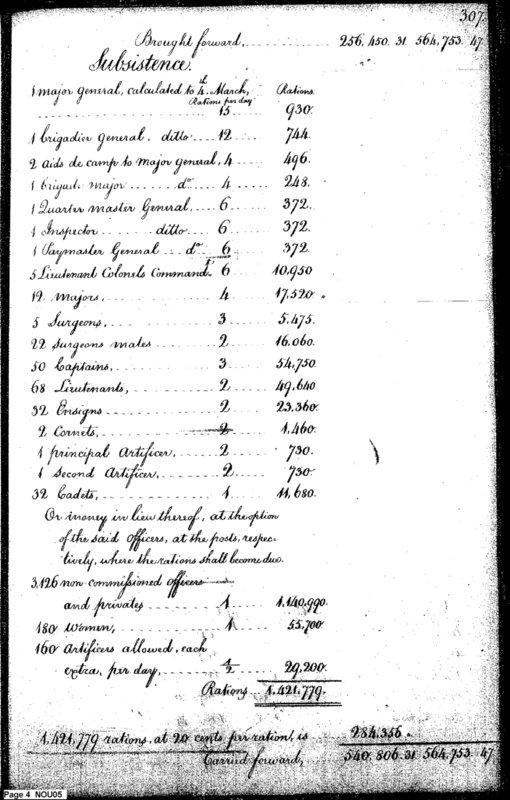 307
Brought forward, 256,450.31 564,753.47
Subsistence.
1 major general, calculated to 4th March, Rations.
Rations per day
15 930.
1 brigadier General, ditto 12 744.
2 aids de camp to major general, 4 496.
1 brigade major do 4 248.
1 Quarter master General, 6 372.
1 Inspector ditto 6 372.
1 Paymaster General do 6 372.
5 Lieutenant Colonels Commandt 6 10,950
12 majors, 4 17,520.
5 Surgeons, 3 5,475.
22 Surgeons mates 2 16,060.
50 Captains, 3 54,750.
68 Lieutenants, 2 49,640
32 Ensigns 2 23,360.
2 Cornets, 2 1,460.
1 principal Artificer, 2 730.
1 Second Artificer, 2 730.
32 Cadets, 1 11,680.
Or money in lieu thereof, at the option
of the said officers, at the posts, respec-
tively, where the rations shall become due.
3,126 non commissioned officers
and privates 1 1,140,990.
180 Women, 1 55,700.
160 Artificers allowed, each
extra, per day, ½ 29,200.
Rations 1,421,779.
1,421,779 rations, at 20 cents per ration, is 284,356.
Carried forward, 540,806.31 564,753.47
Page 4 NOU05